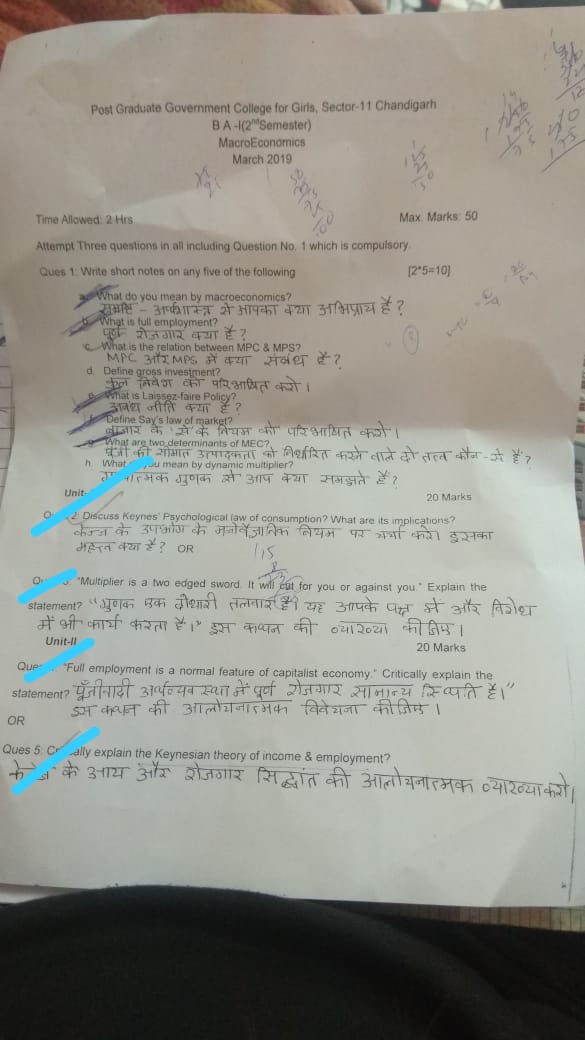 Post Graduate Government College for Girls, Sector-11 Chandigarh
B A -I(2nd Semester)
MacroEconomics
March 2019
Time Allowed: 2 Hrs Max. Marks: 50
Attempt Three questions in all including Question No. 1 which is compulsory.
Ques 1: Write short notes on any five of the following [2*5=10]
What do you mean by macroeconomics?
समष्टि - अर्थशास्त्र से आपका क्या अभिप्राय है?
What is full employment?
पूर्ण रोजगार क्या है?
c. What is the relation between MPC & MPS?
MPC और MPS में क्या संबंध है?
d. Define gross investment?
कुल निवेश को परिभाषित करो।
What is Laissez-faire Policy?
अबंध नीति क्या है?
Define Say's law of market?
बाजार के 'से' के नियम को परिभाषित करो।
What are two determinants of MEC?
पूंजी की सीमांत उत्पादकता को निर्धारित करने वाले दो तत्व कौन-से हैं?
h. What you mean by dynamic multiplier?
गुणक से आप क्या समझते हैं?
Unit- 20 Marks
2: Discuss Keynes' Psychological law of consumption? What are its implications?
केन्ज के उपभोग के मनोवैज्ञानिक नियम पर चर्चा करो। इसका
महत्व क्या है? OR
"Multiplier is a two edged sword. It will cut for you or against you." Explain the
statement? "गुणक एक दोधारी तलवार है। यह आपके पक्ष में और विरोध
में भी कार्य करता है।" इस कथन की व्याख्या कीजिए।
Unit-II 20 Marks
"Full employment is a normal feature of capitalist economy." Critically explain the
statement? पूँजीवादी अर्थव्यवस्था में पूर्ण रोजगार सामान्य स्थिति है।"
इस कथन की आलोचनात्मक विवेचना कीजिए।
OR
Ques 5: Critically explain the Keynesian theory of income & employment?
केन्ज के आय और रोजगार सिद्धांत की आलोचनात्मक व्याख्या करो।